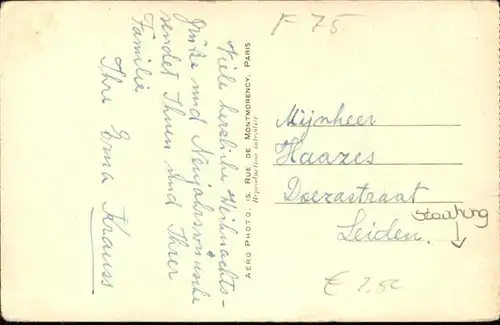 Viele herzliche Weihnachts-
grüße und Neujahrswünsche
sendet Ihnen und Ihrer
Familie
Ihre Erna Krauss
AERO PHOTO. 15, RUE DE MONTMORENCY, PARIS
Reproduction interdite
F 75
Mijnheer
Haazes
Doezastraat
Leiden.
€ 2,50